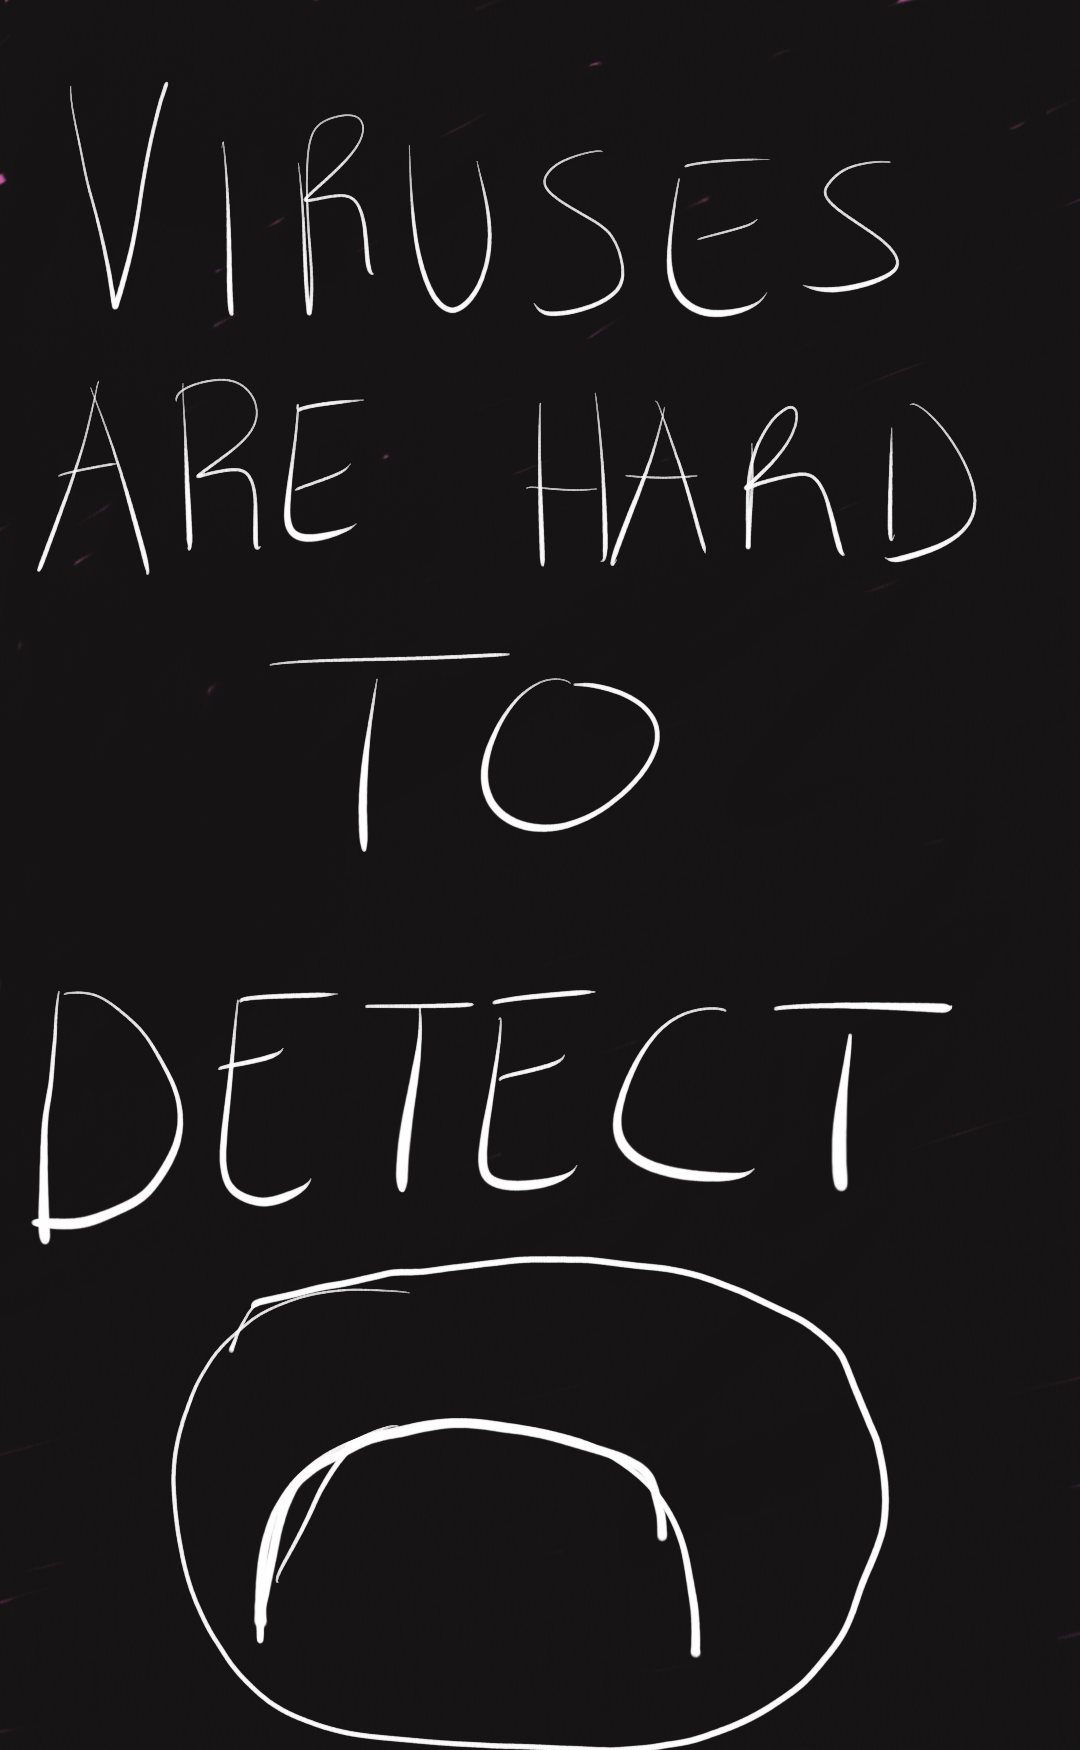 VIRUSES
ARE HARD
TO
DETECT